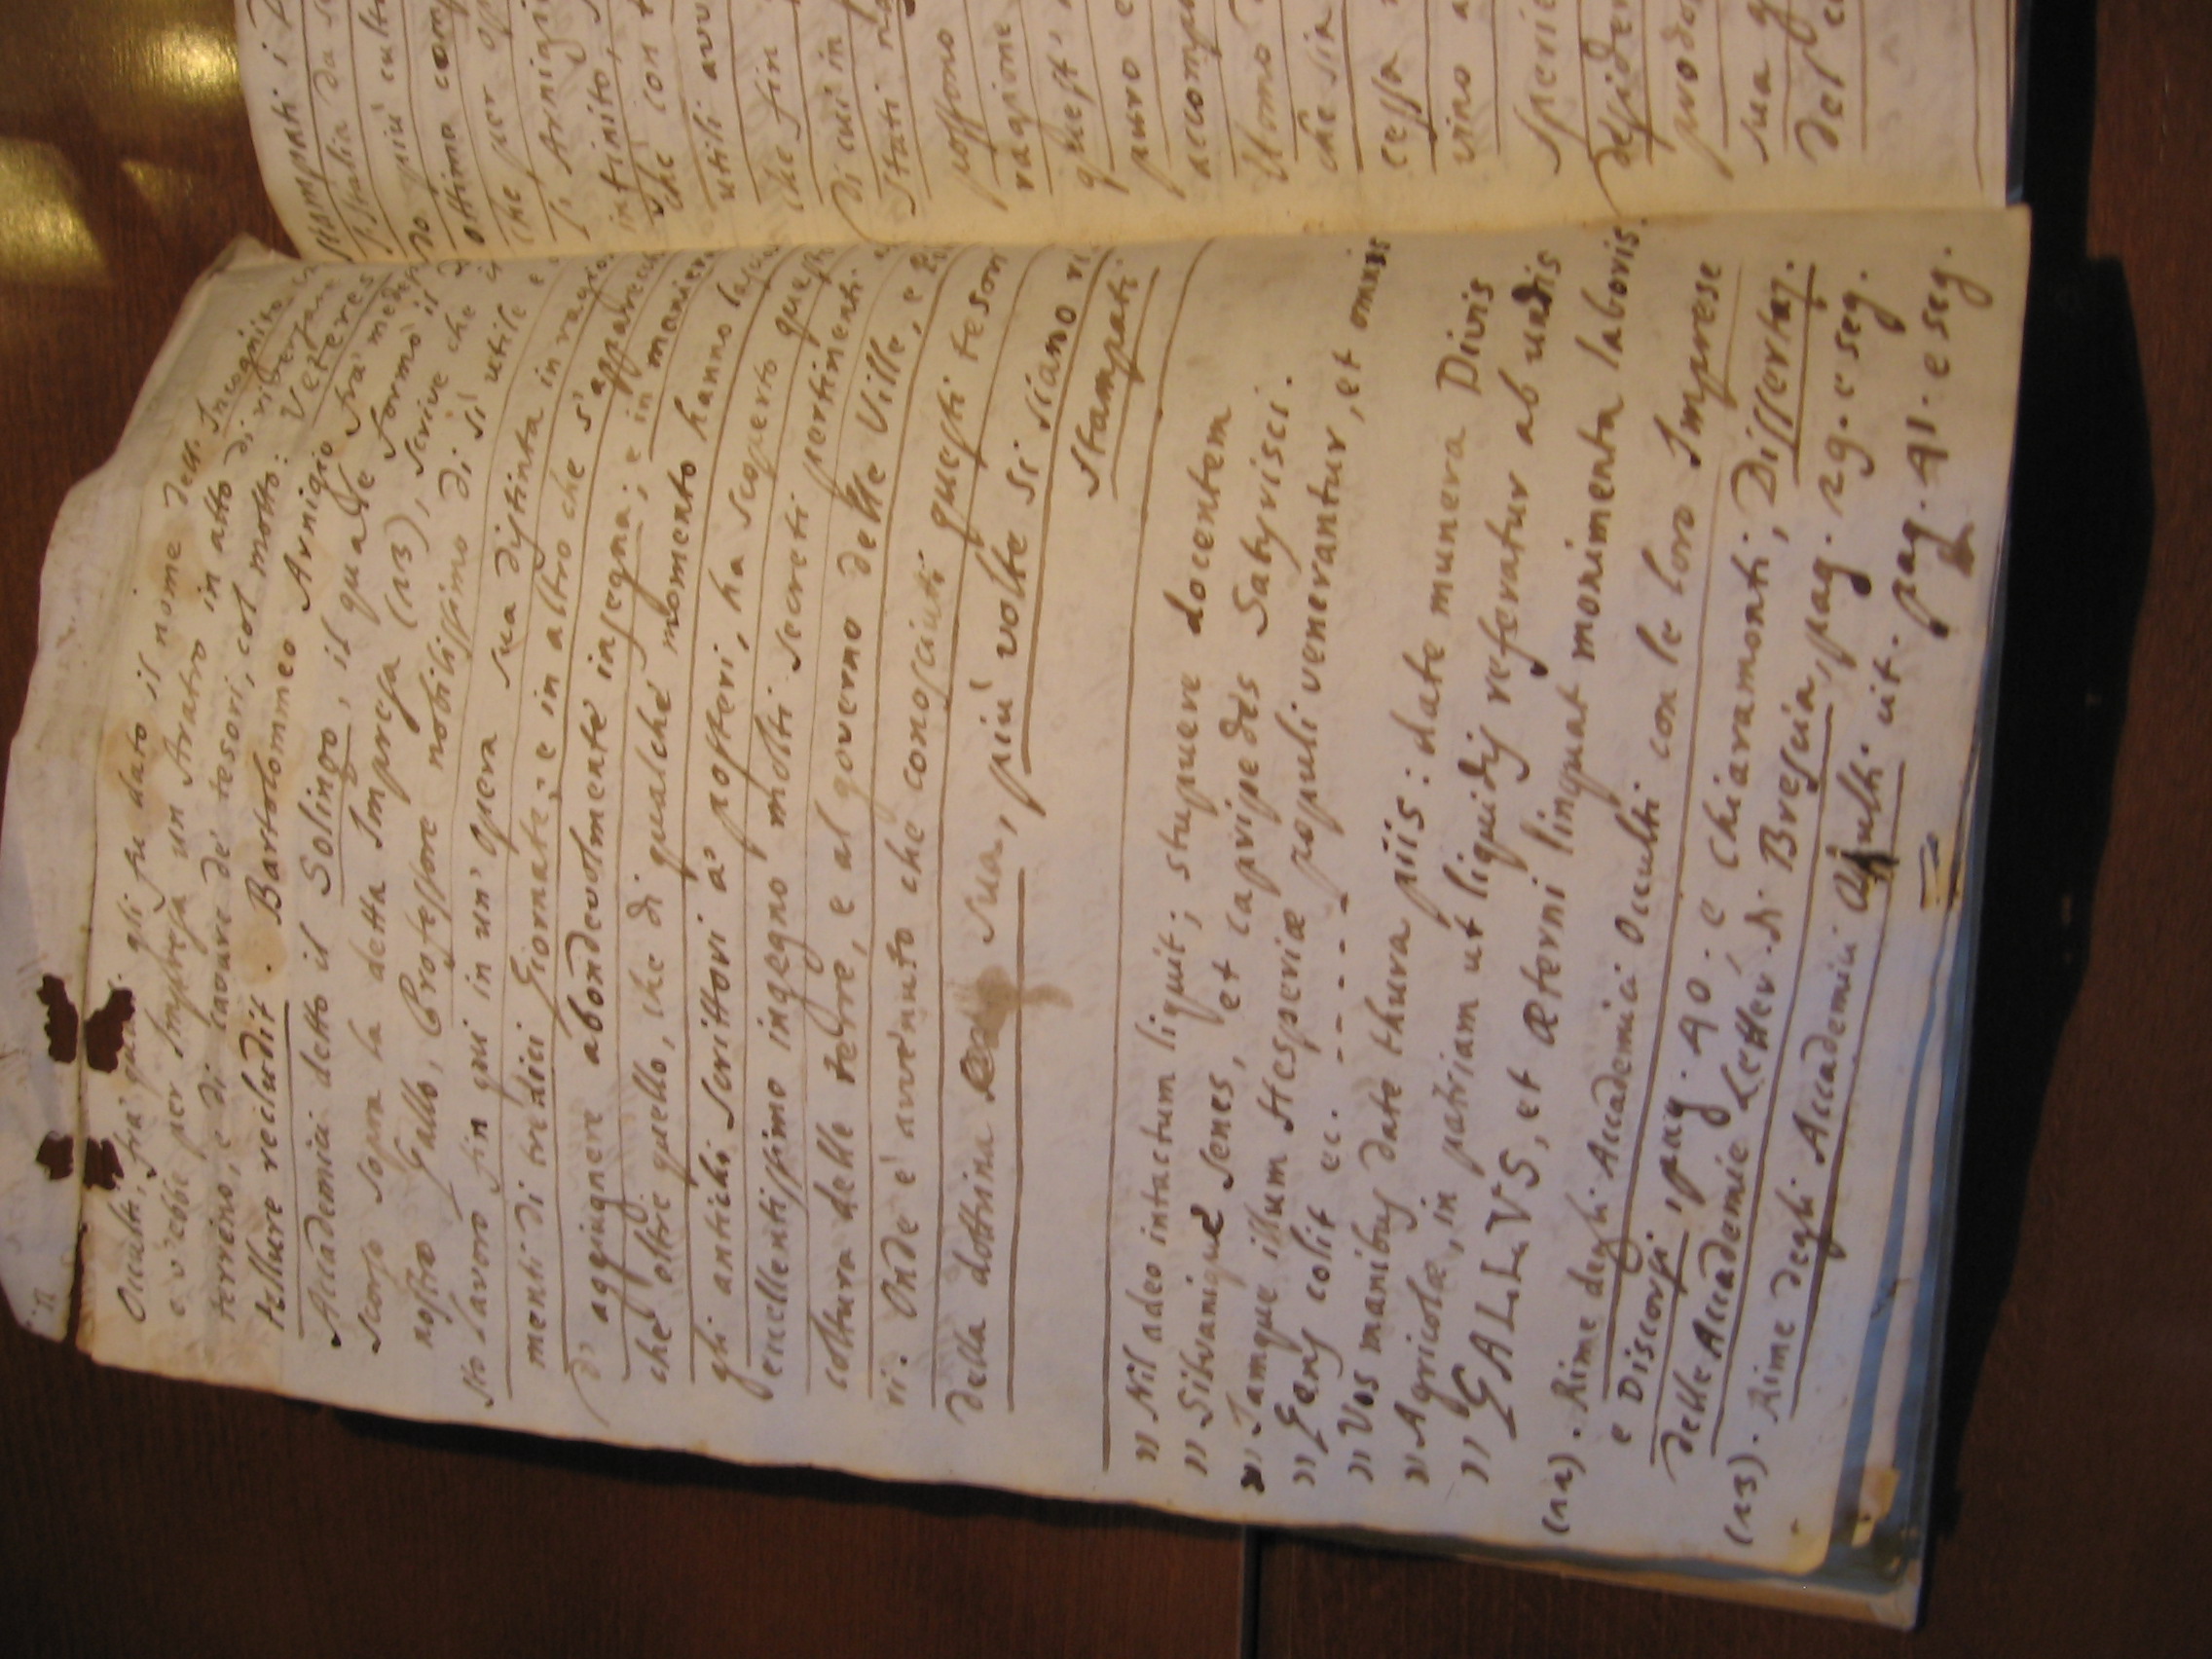 Occulti, frà quali gli fu dato il nome dell' Incognito
e v' ebbe per Impresa un Aratro in atto di riversare
terreno, e di cavare de' tesori, col motto: Veteres
tellure recludit. Bartolommeo Arnigio frà mede
Accademici detto il Solingo, il quale formò il
scorso sopra la detta Impresa (13), scrive che i
nostro Gallo, Professore nobilissimo di sì utile e
sto lavoro fin qui in un' opera sua distinta in ragio
menti di tredici Giornate; e in altro che s'apparecch
d' aggiugnere abondevolmente insegna; e in manier
che oltre quello, che di qualche momento hanno lasci
gli antichi Scrittori a' posteri, ha scoperto quest
eccellentissimo ingegno molti secreti pertinenti
coltura delle terre, e al governo delle Ville, e
ri. Onde è avvenuto che conosciuti questi tesori
della dottrina sua, più volte si siano ri
stampati.
" Nil adeo intactum liquit; stupuere docentem
" Silvanique senes, et capripedes Satyrisci.
" Jamque illum Hesperiæ populi venerantur, et omnis
" Gens colit ec. - - - - - -
" Vos manibus date thura piis: date munera Divis
" Agricolæ, in patriam ut liquidis referatur ab undis
" GALLVS, et æterni linquat monimenta laboris.
(12). Rime degli Accademici Occulti con le loro Imprese
e Discorsi, pag. 40. e Chiaramonti, Dissertaz.
delle Accademie Letter. di Brescia, pag. 29. e seg.
(13). Rime degli Accademici Occulti cit. pag. 41. e seg.
stampati i
Italia da
più cult
ottima com
che per
Arnigi
infinito,
che con
utili avv
che fin
di cui in
stati
possono
ragione
quest'
puro e
accomp
Uomo
che sia
cessa
vino a
speri
desider
prodo
sua
del